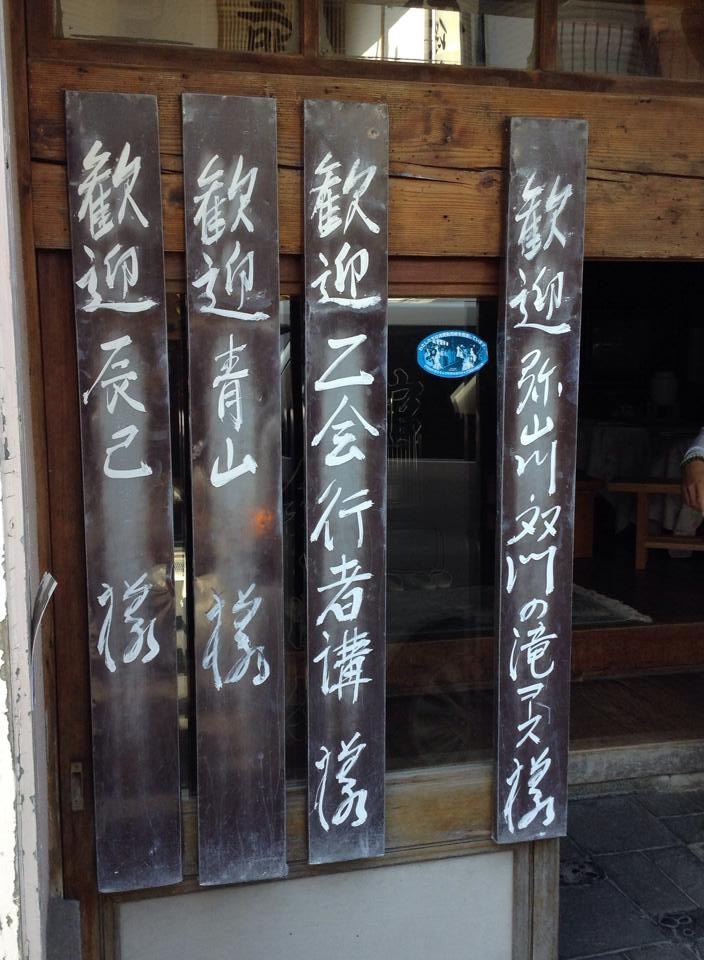 歓迎 弥山川双門の滝コース様
歓迎 乙会行者講 様
歓迎 青山 様
歓迎 辰己 様